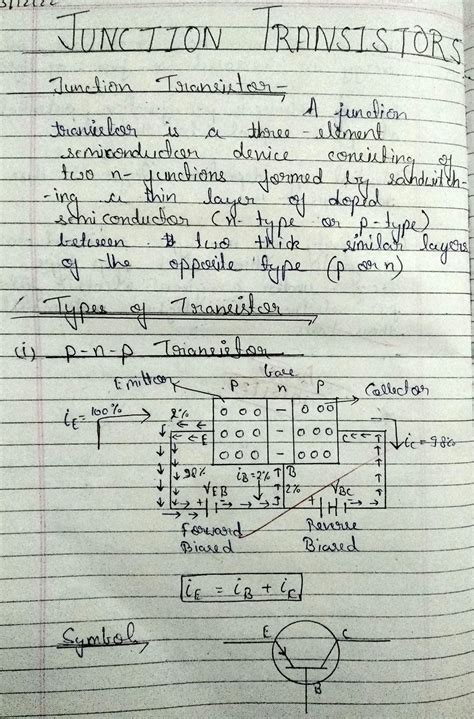 JUNCTION TRANSISTORS
Junction Transistor -
A junction
transistor is a three-element
semiconductor device consisting of
two n- junctions formed by sandwitch-
-ing a thin layer of doped
semiconductor (n-type or p-type)
between two thick similar layers
of the opposite type (p or n)
Types of Transistor
(i) p-n-p Transistor
base
Emitter P n P Collector
iE = 100%
2%
E C
iC = 98%
98% iB = 2% B
2%
VEB VBC
+ +
Forward Reverse
Biased Biased
iE = iB + iC
Symbol
E C
B